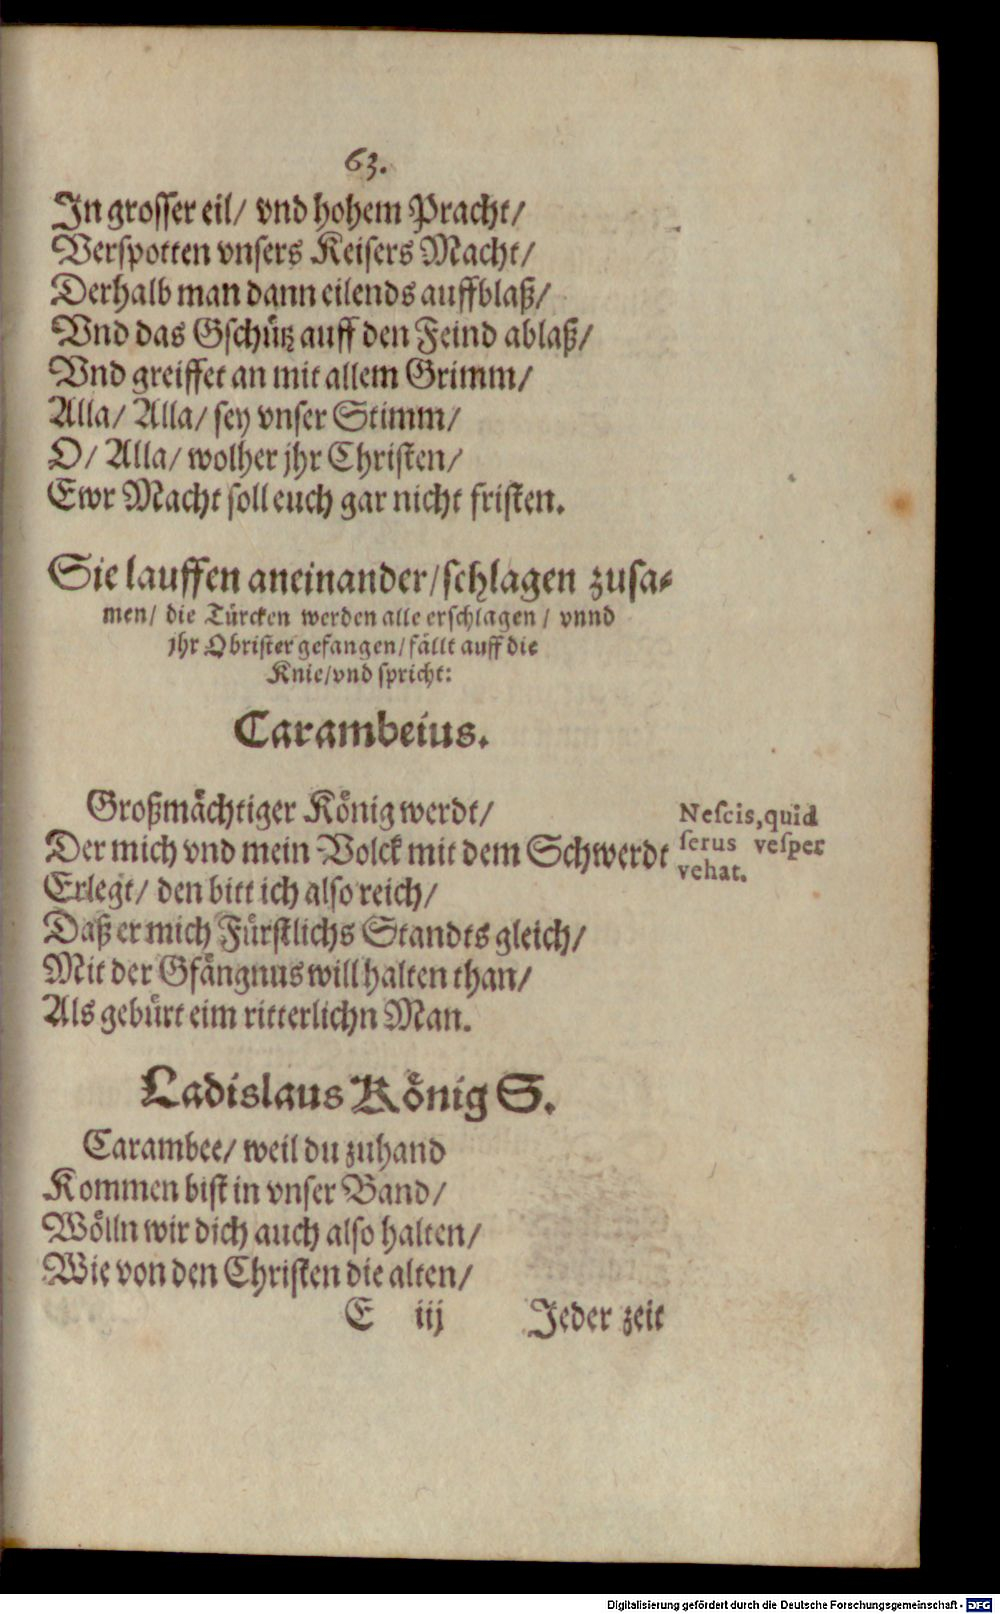 63.
In grosser eil/ vnd hohem Pracht/
Verspotten vnsers Keisers Macht/
Derhalb man dann eilends auffblaß/
Vnd das Gschütz auff den Feind ablaß/
Vnd greiffet an mit allem Grimm/
Alla/ Alla/ sey vnser Stimm/
O/ Alla/ wolher jhr Christen/
Ewr Macht soll euch gar nicht fristen.
Sie lauffen aneinander/ schlagen zusa-
men/ die Türcken werden alle erschlagen/ vnnd
jhr Obrister gefangen/ fällt auff die
Knie/ vnd spricht:
Carambeius.
Großmächtiger König werdt/
Der mich vnd mein Volck mit dem Schwerdt
Erlegt/ den bitt ich also reich/
Daß er mich Fürstlichs Standts gleich/
Mit der Gfängnus will halten than/
Als gebürt eim ritterlichn Man.
Nescis, quid
serus vesper
vehat.
Ladislaus König S.
Carambee/ weil du zuhand
Kommen bist in vnser Band/
Wölln wir dich auch also halten/
Wie von den Christen die alten/
E iij Jeder zeit
Digitalisierung gefördert durch die Deutsche Forschungsgemeinschaft - DFG